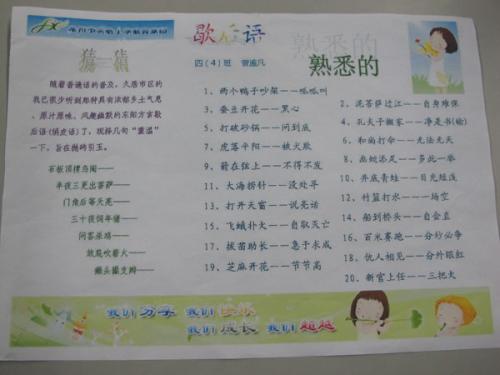 歇后语
猜一猜
四（4）班
熟悉的
熟悉的
随着普通话的普及，久居市区的
我已很少听到那特具有浓郁乡土气息、
原汁原味、风趣幽默的东阳方言歇
后语（俏皮话）了，现择几句“重温”
一下，旨在抛砖引玉。
石板顶掼乌龟——
半夜三更出菩萨——
门角后等天亮——
三十夜饲年猪——
问客杀鸡——
1、两个鸭子吵架——呱呱叫
3、蚕豆开花——黑心
5、打破砂锅——问到底
7、虎落平阳——被犬欺
9、箭在弦上——不得不发
11、大海捞针——没处寻
13、打开天窗——说亮话
15、飞蛾扑火——自取灭亡
17、拔苗助长——急于求成
19、芝麻开花——节节高
20、泥菩萨过江——自身难保
4、孔夫子搬家——净是书(输)
6、和尚打伞——无法无天
8、画蛇添足——多此一举
10、井底青蛙——目光短浅
12、竹篮打水——一场空
14、船到桥头——自会直
16、百米赛跑——分秒必争
18、仇人相见——分外眼红
20、新官上任——三把火
我们分享 我们快乐
我们成长 我们超越